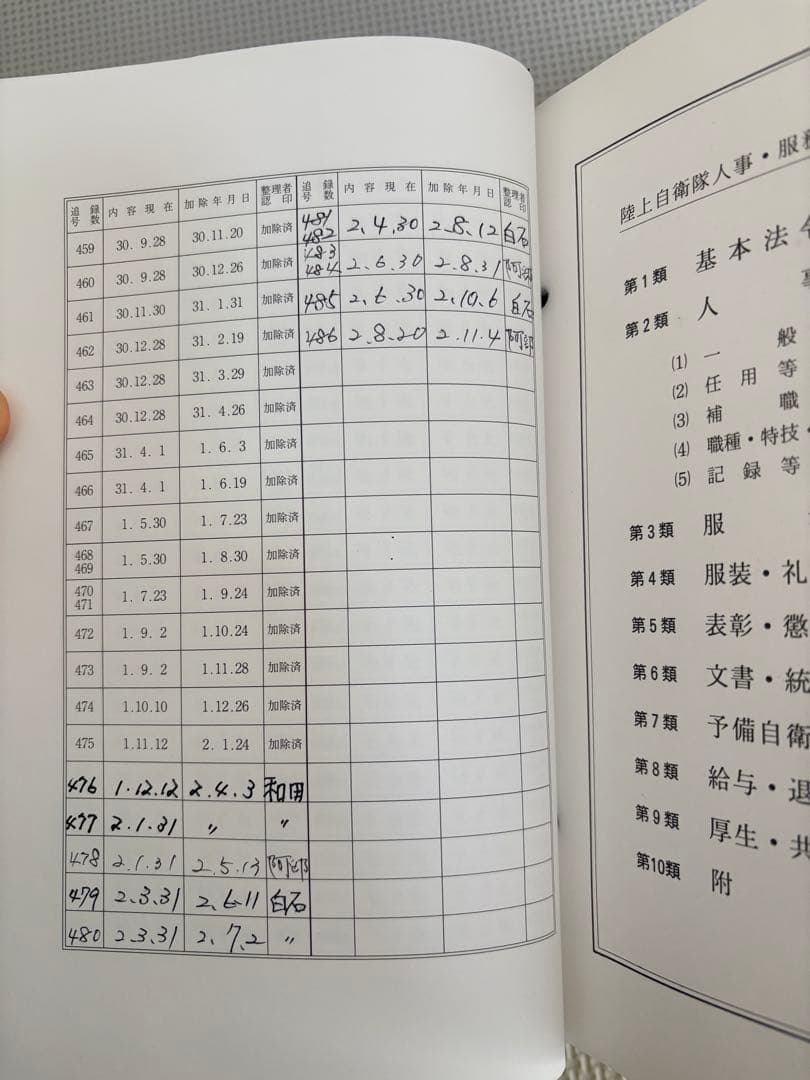 追録号数 内容現在 加除年月日 整理者認印 追録号数 内容現在 加除年月日 整理者認印
459 30. 9.28 30.11.20 加除済 481 482 2.4.30 2.8.12 白石
460 30. 9.28 30.12.26 加除済 483 484 2.6.30 2.8.31
461 30.11.30 31. 1.31 加除済 485 2.6.30 2.10.6 白石
462 30.12.28 31. 2.19 加除済 486 2.8.20 2.11.4
463 30.12.28 31. 3.29 加除済
464 30.12.28 31. 4.26 加除済
465 31. 4. 1 1. 6. 3 加除済
466 31. 4. 1 1. 6.19 加除済
467 1. 5.30 1. 7.23 加除済
468 469 1. 5.30 1. 8.30 加除済
470 471 1. 7.23 1. 9.24 加除済
472 1. 9. 2 1.10.24 加除済
473 1. 9. 2 1.11.28 加除済
474 1.10.10 1.12.26 加除済
475 1.11.12 2. 1.24 加除済
476 1.12.12 2.4.3 和田
477 2.1.31 〃 〃
478 2.1.31 2.5.13
479 2.3.31 2.6.11 白石
480 2.3.31 2.7.2 〃
陸上自衛隊人事・服務
第1類 基本法令
第2類 人事
(1) 一般
(2) 任用等
(3) 補職
(4) 職種・特技・
(5) 記録等
第3類 服
第4類 服装・礼
第5類 表彰・懲
第6類 文書・統
第7類 予備自衛
第8類 給与・退
第9類 厚生・共
第10類 附